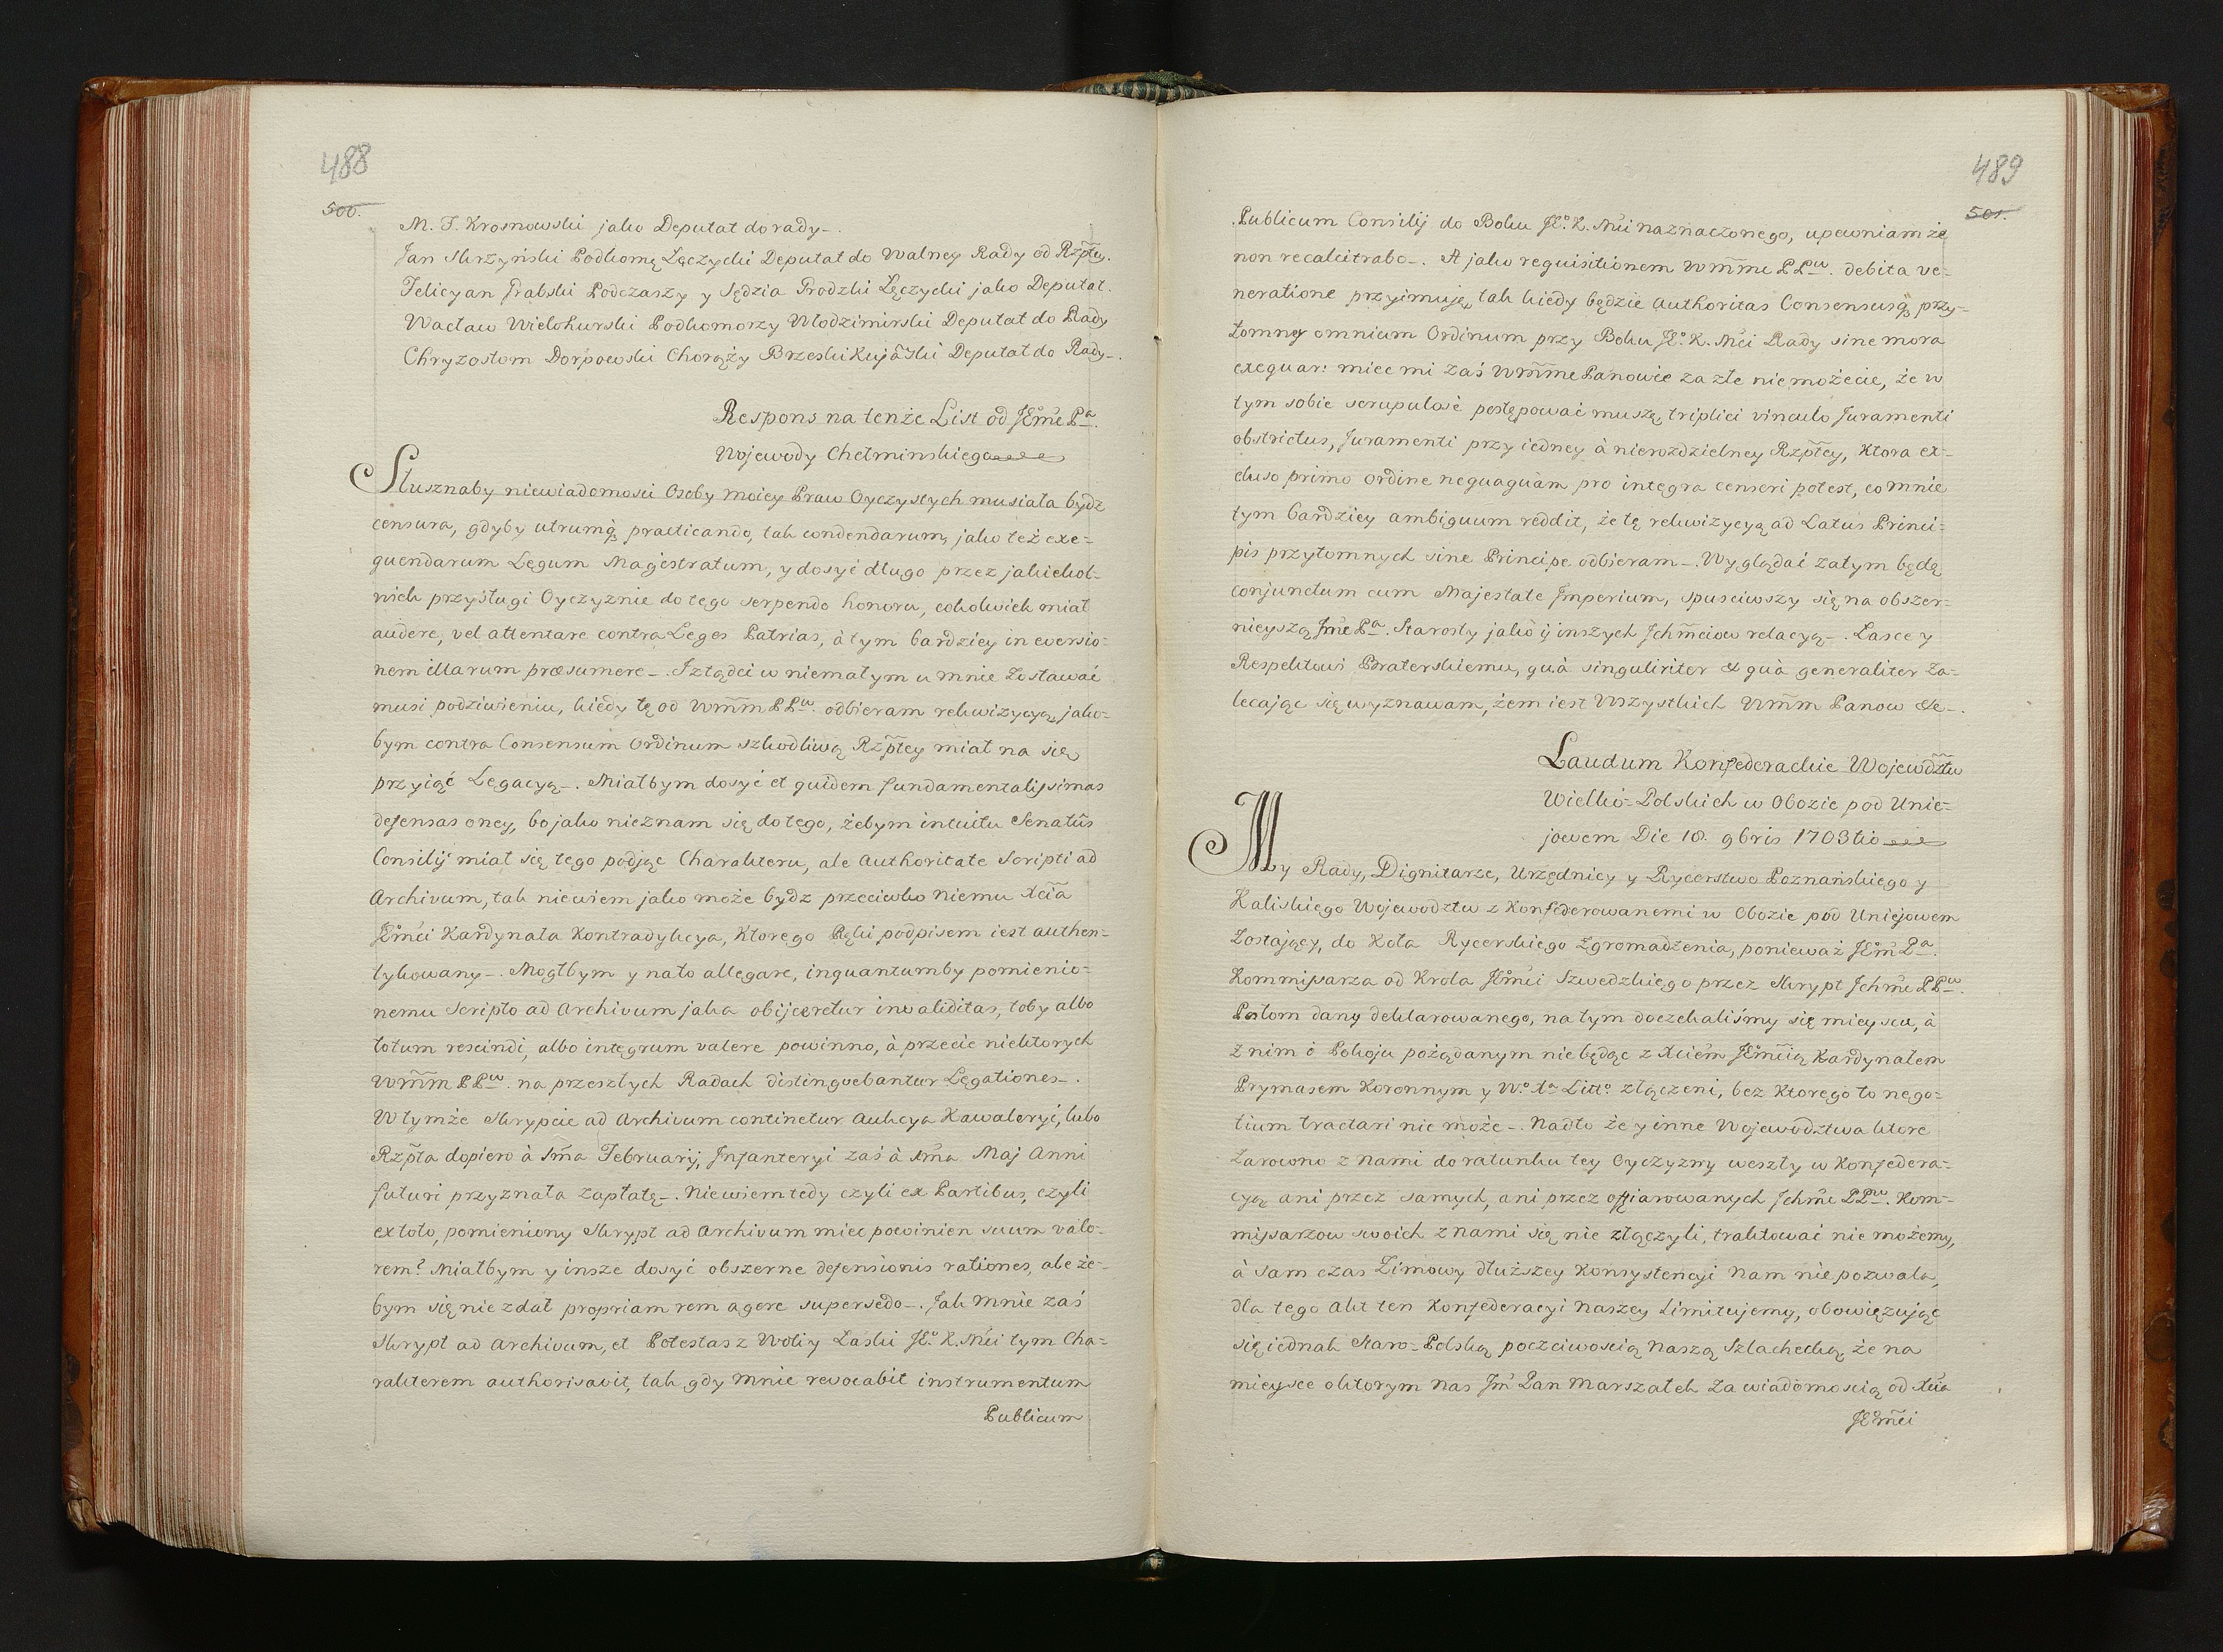 488
500.
M. F. Krosnowski jako Deputat do rady-.
Jan Skrzyński Podkomę Łęczycki Deputat do Walney Rady od Rzp̃tey.
Felicyan Grabski Podczaszy y Sędzia Grodzki Łęczycki jako Deputat.
Wacław Wielohurski Podkomorzy Włodzimirski Deputat do Rady
Chryzostom Dorpowski Chorąży Brzeski Kujãski Deputat do Rady-.
Respons na tenże List od JEm̃e Pa.
Wojewody Chełminskiego
Słusznaby niewiadomosci Osoby moiey Praw Oyczystych musiała bydz
censura, gdyby utrumq̨ practicando, tak condendarum, jako też exe=
quendarum Legum Magistratum, y dosyć długo przez jakiekol=
wiek przysługi Oyczyznie do tego serpendo honoru, cokolwiek miał
audere, vel attentare contra Leges Patrias, à tym bardziey in eversio=
nem illarum præsumere-. Iztądci w niemałym u mnie zostawać
musi podziwieniu, kiedy tę od Wm̃m PPw. odbieram rekwizycyą, jako=
bym contra Consensum Ordinum szkodliwą Rzp̃tey miał na się
przyiąć Legacyą-. Miałbym dosyć et quidem fundamentalissimas
defensas oney, bo jako nieznam się do tego, żebym intuitu Senatûs
Consilij miał się tego podjąc Charakteru, ale Authoritate Scripti ad
Archivum, tak niewiem jako może bydz przeciwko niemu Xcia
JEm̃ci Kardynała Kontradykcya, Ktorego Ręki podpisem iest authen=
tykowany-. Mogłbym y na to allegare, inquantumby pomienio=
nemu Scripto ad Archivum jaka obijceretur invaliditas, toby albo
totum rescindi, albo integrum valere powinno, à przecie niektorych
Wm̃m PPw. na przeszłych Radach distinguebantur Legationes-.
W tymże Skrypcie ad Archivum continetur Aukcya Kawaleryi, lubo
Rzp̃ta dopiero à 1m̃a Februarij, Jnfanteryi zaś à 1m̃a Maj Anni
futuri przyznała zapłatę-. Niewiem tedy czyli ex Partibus, czyli
ex toto, pomieniony Skrypt ad Archivum miec powinien suum valo=
rem? Miałbym y insze dosyć obszerne defensionis rationes, ale że=
bym się nie zdał propriam rem agere supersedo-. Jak mnie zaś
Skrypt ad Archivum, et Potestas z Woli y Łaski JEo. K. Mci tym Cha=
rakterem authorisavit, tak gdy mnie revocabit instrumentum
Publicum
489
501.
Publicum Consilij do Boku JEo. K. Mci naznaczonego, upewniam że
non recalcitrabo-. A jako requisitionem Wm̃me PPw. debita ve=
neratione przyimuję, tak kiedy będzie Authoritas Consensusq̨ przy=
tomny omnium Ordinum przy Boku JEo. K. Mci Rady sine mora
exequar: miec mi zaś Wm̃me Panowie za złe niemożecie, że w
tym sobie scrupulosè postępować muszę, triplici vinculo Juramenti
obstrictus, Juramenti przy iedney à nierozdzielney Rzp̃tey, Ktora ex=
cluso primo ordine nequaquàm pro integra censeri potest, co mnie
tym bardziey ambiguum reddit, że tę rekwizycyą ad Latus Princi=
pis przytomnych sine Principe odbieram-. Wyglądać zatym będę
conjunctum cum Majestate Jmperium, spusciwszy się na obszer=
nieyszą Jm̃e Pa. Starosty jako ij inszych Jchm̃ciow relacyą-. Łasce y
Respektowi Braterskiemu, quà singuliriter & quà generaliter za=
lecając się wyznawam, żem iest Wszystkich Wm̃m Panow &e-.
Laudum Konfederackie Wojewodz̃tw
Wielko-Polskich w Obozie pod Unie=
jowem Die 18. 9bris 1703tio
My Rady, Dignitarze, Urzędnicy y Rycerstwo Poznańskiego y
Kaliskiego Wojewodztw z Konfederowanemi w Obozie pod Uniejowem
Zostający, do Koła Rycerskiego Zgromadzenia, ponieważ JEm̃ Pa.
Kommissarza od Krola JEm̃ci Szwedzkiego przez Skrypt Jchm̃e PPw.
Posłom dany deklarowanego, na tym doczekaliśmy się mieyscu, à
z nim ò Pokoju pożądanym niebędąc z Xciem JEm̃cią Kardynałem
Prymasem Koronnym y Wo. Xa Litto. złączeni, bez Ktorego to nego=
tium tractari nie może-. Nadto że y inne Wojewodztwa ktore
Zarowno z nami do ratunku tey Oyczyzny weszły w Konfedera=
cyą ani przez samych, ani przez offiarowanych Jchm̃e PPw. Kom=
missarzow swoich z nami się nie złączyli, traktować nie możemy,
à sam czas Zimowy dłuższey Konsystencyi nam nie pozwala,
dla tego Akt ten Konfederacyi naszey Limitujemy, obowięzując
się iednak Staro-Polską poczciwoscią naszą Szlachecką, że na
mieysce o ktorym nas Jm̃ Pan Marszałek Za wiadomoscią od Xcia
JEm̃ci